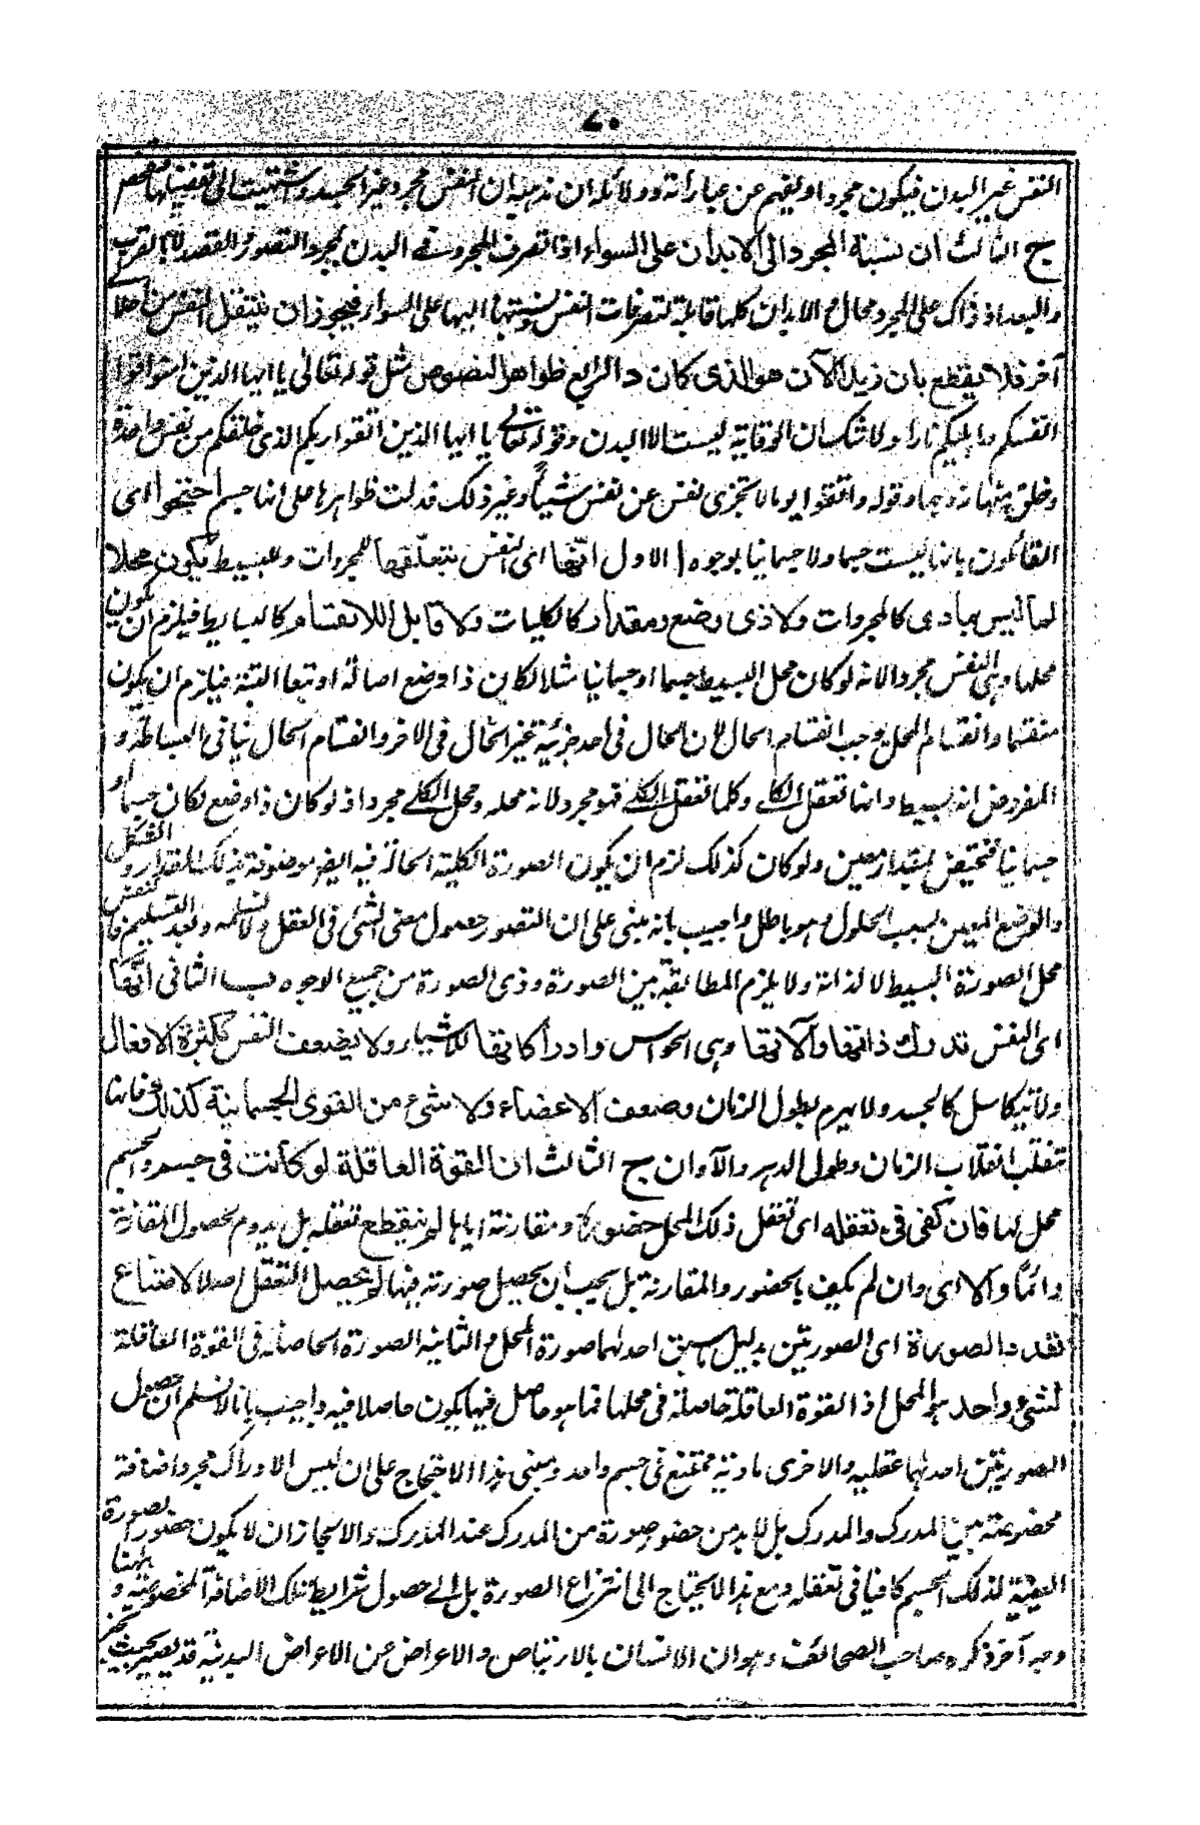 ٧٠
النفس غير البدن فيكون مجردا ويفهم عن عباراته ودلائله ان مذهبه ان النفس مجرد غير الجسد وشتيت الى تفصيلها
ج الثالث ان نسبة المجرد الى الابدان على السواء اذا تصرف المجرد فى البدن لمجرد التصور والقصد لا بالقرب
والبعد اذ ذاك على المجرد محال والابدان كلها قابلة لتصرفات النفس ونسبتها اليها على السواء فيجوز ان ينتقل النفس من
آخر فلا يقطع بان زيد الآن هو الذى كان د الرابع ظواهر النصوص مثل قوله تعالى يا ايها الذين امنوا قوا
انفسكم واهليكم نارا ولا شك ان الوقاية ليست الا البدن وقوله تعالى يا ايها الذين اتقوا ربكم الذى خلقكم من نفس واحدة
وخلق منها زوجها وقوله واتقوا يوما لا تجزى نفس عن نفس شيئاً وغير ذلك فدلت ظواهرها على انها جسم احتجوا اى
القائلون بانها ليست جسما ولا جسمانيا بوجوه ا الاول انّها اى النفس بتعلّقها للمجردات وللبسيط تكون محلا
لما ليس بمادى كالمجردات ولا ذى وضع ومقدار كالكليات ولا قابل للانقسام كالبسايط فيلزم ان يكون
محلها وهى النفس مجردا لانه لو كان محل البسيط جسما او جسمانيا مثلا لكان ذا وضع اصالة او تبعا البتة فيلزم ان يكون
منقسما وانقسام المحل يوجب انقسام الحال لان الحال فى احد جزئيه غير الحال فى الاخر وانقسام الحال ينافى البساطة و
المفروض انه بسيط وانها تعقل الكلى وكلما تعقل الكلى فهو مجرد لانه محله ومحل الكلى مجرد اذ لو كان ذا وضع لكان جسما او
جسمانيا فتختص بمقدار معين ولو كان كذلك لزم ان يكون الصورة الكلية الحالة فيه ايضا موصوفة بذلك المقدار والشكل
والوضع المعين بسبب الحلول وهو باطل واجيب بانه مبنى على ان التصور حصول معنى الشئ فى العقل ولا نسلمه وبعد التسليم فالنفس
محل الصورة البسيط لا لذاته ولا يلزم المطابقة بين الصورة وذى الصورة من جميع الوجوه ب الثانى انّها
اى النفس تدرك ذاتها وآلاتها وهى الحواس وادراكاتها للاشياء ولا يضعف النفس كثرة الافعال
ولا تتكاسل كالجسد ولا يهرم بطول الزمان وضعف الاعضاء ولا شئ من القوى الجسمانية كذلك فانها
تنقلب بانقلاب الزمان وطول الدهر والآوان ج الثالث ان القوة العاقلة لو كانت فى جسم والجسم
محل لها فان كفى فى تعقله اى تعقل ذلك المحل حضوره ومقارنة اياها لم ينقطع تعقله بل يدوم بحصول المقارنة
دائماً والا اى وان لم يكف بالحضور والمقارنة بل يجب ان يحصل صورته فيها لم يحصل التعقل اصلا لامتناع
تعدد الصورة اى الصورتين بدليل سبق احدهما صورة المحل والثانية الصورة الحاصلة فى القوة العاقلة
لشئ واحد هو المحل اذ القوة العاقلة حاصلة فى محلها فما هو حاصل فيها يكون حاصلا فيه واجيب بانا لا نسلم ان حصول
الصورتين احدهما عقلية والاخرى مادية ممتنع فى جسم واحد ومبنى هذا الاحتجاج على ان ليس الادراك مجرد اضافة
مخصوصة بين المدرك والمدرك بل لا بد من حضور صورة من المدرك عند المدرك والا سجاز ان لا يكون حضور الصورة
العينية لذلك الجسم كافيا فى تعقله ومع هذا لا يحتاج الى انتزاع الصورة بل الى حصول شرايط تلك الاضافة المخصوصة وههنا
وجه آخر ذكره صاحب الصحائف وهو ان الانسان بالارتياض والاعراض عن الاعراض البدنية قد يصير بحيث